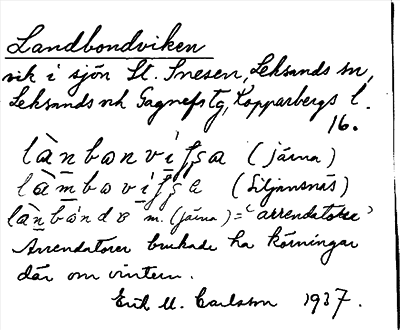 Landbondviken
vik i sjön St. Snesen, Leksands sn,
Leksands och Gagnefs tg, Kopparbergs l.
16.
lànbonvíʃʃa (Järna)
làmboviʃʃa (Siljansnäs)
lànbònda m. (Järna) = 'arrendator'
Arrendatorer brukade ha körningar
där om vintern.
Erik M. Carlsson 1937.